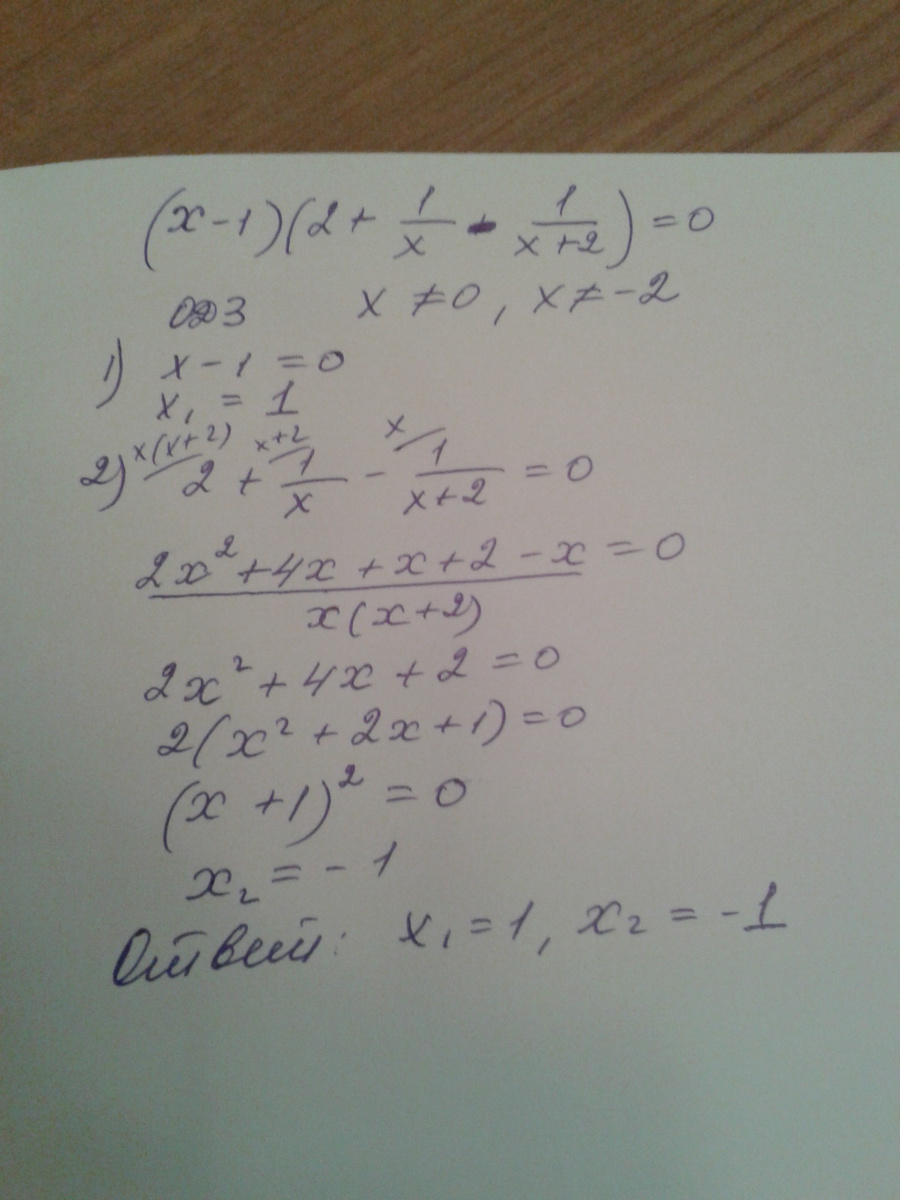 (x-1)(2+ 1/x - 1/(x+2)) = 0
ОДЗ x ≠ 0, x ≠ -2
1) x - 1 = 0
x₁ = 1
x(x+2) x+2 x
2) 2 + 1/x - 1/(x+2) = 0
(2x² + 4x + x + 2 - x)/(x(x+2)) = 0
2x² + 4x + 2 = 0
2(x² + 2x + 1) = 0
(x + 1)² = 0
x₂ = - 1
Ответ: x₁ = 1, x₂ = -1